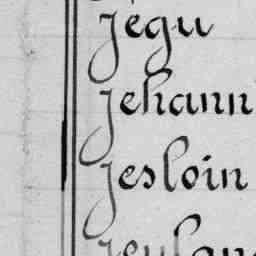 Jégu
Jehann
Jesloin